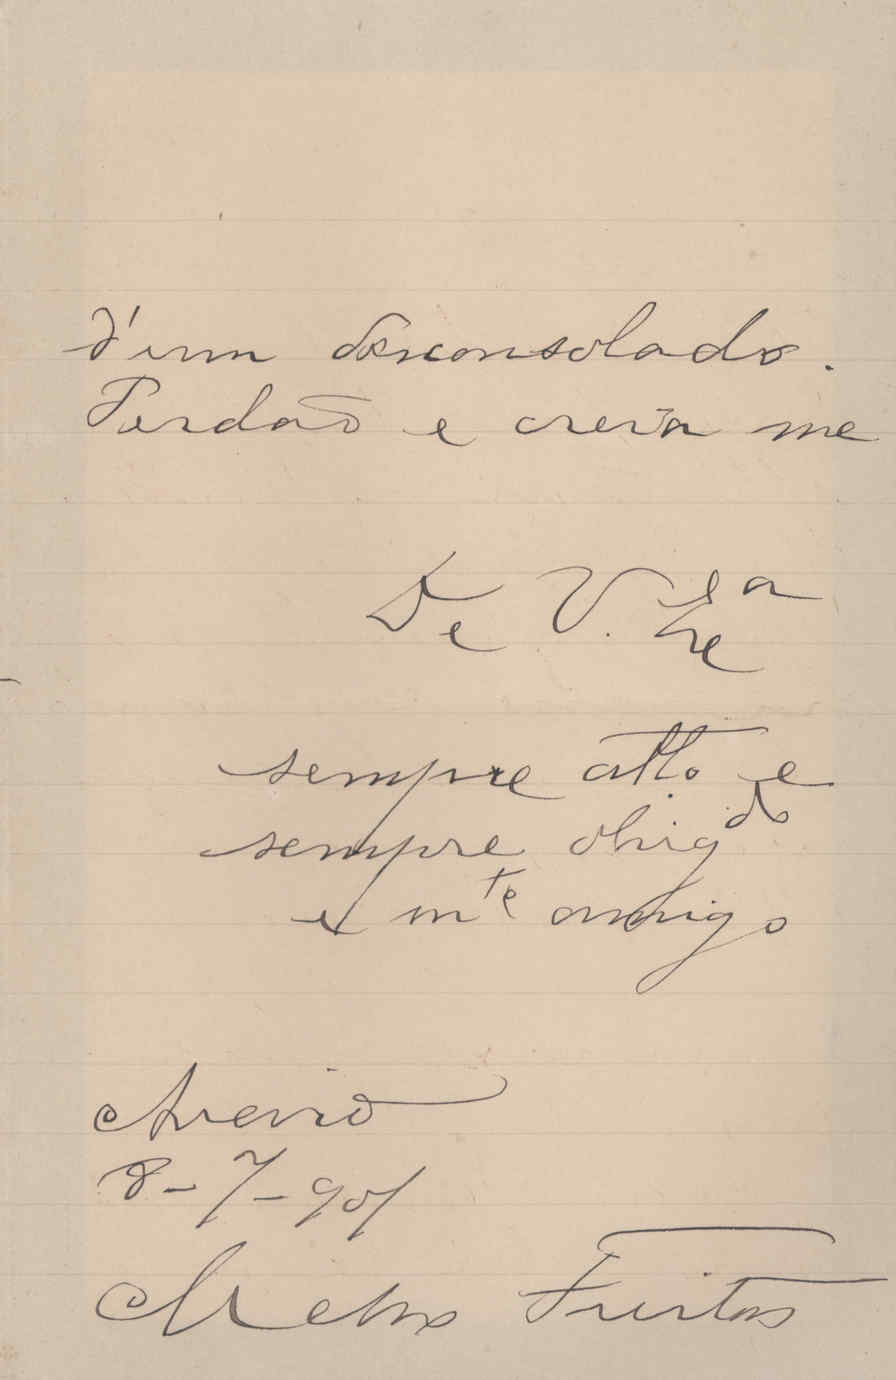 d'um desconsolado.
Perdão e creia me
De V. Exª
sempre attº e
sempre obrigdo
e mte amigo
Aveiro
8-7-901
Mello Freitas